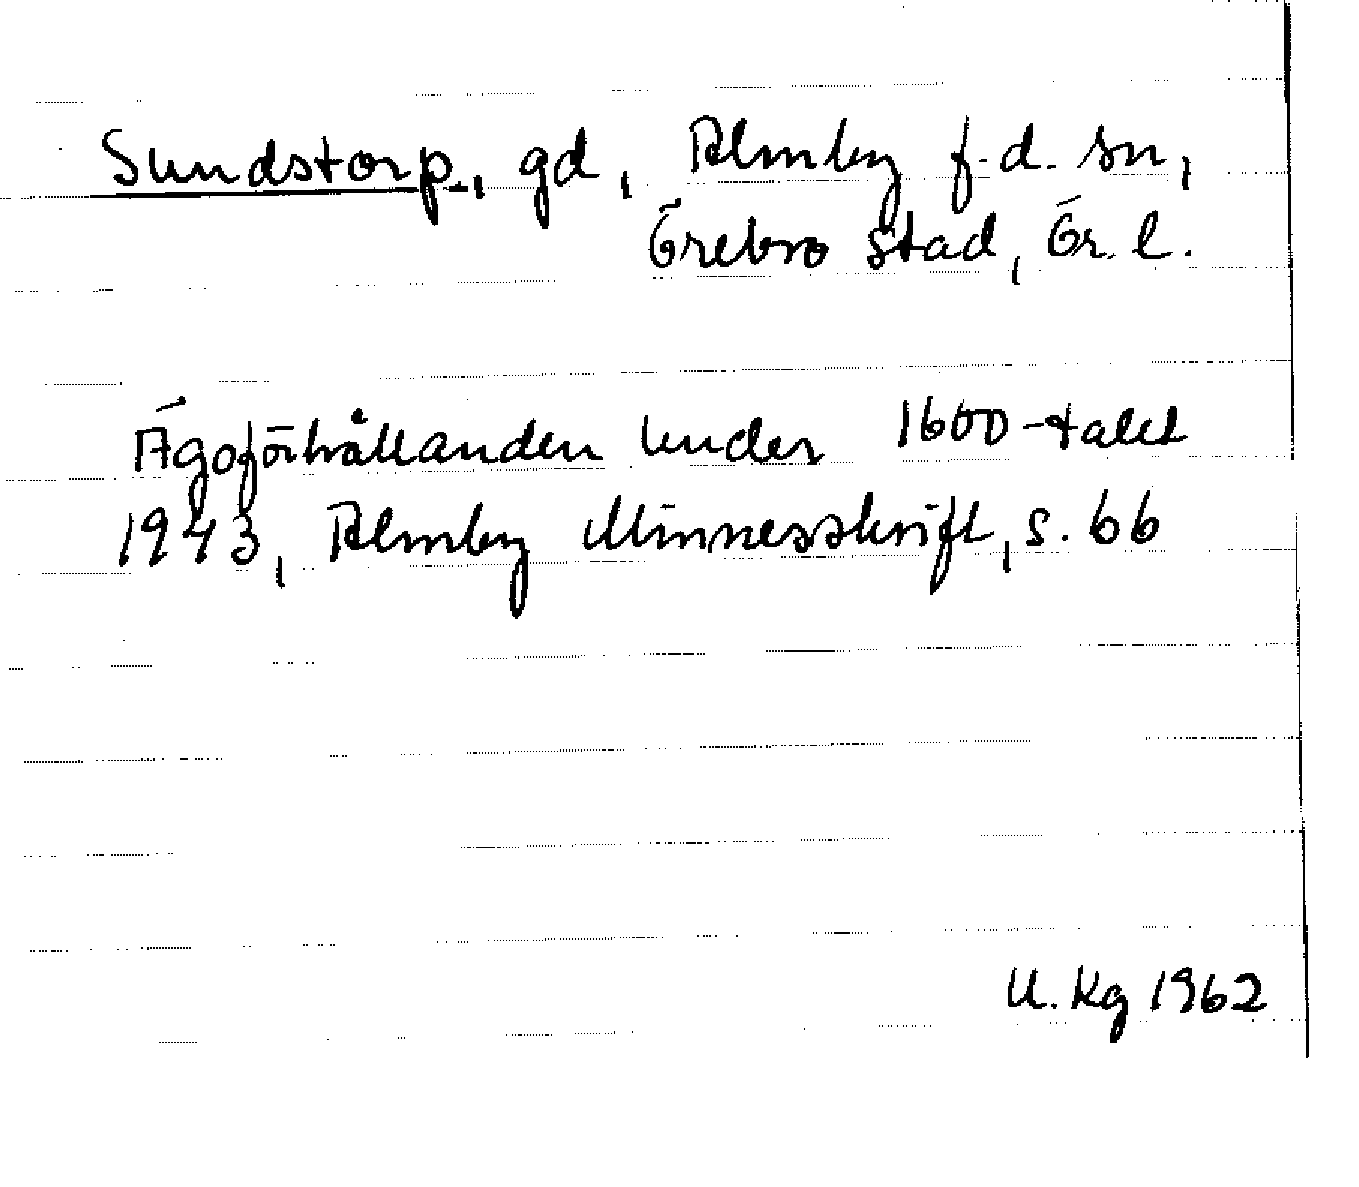 Sundstorp, gd, Almby f.d. sn,
Örebro stad, Ör. l.
Ägoförhållanden under 1600-talet
1943, Almby Minnesskrift, s. 66
U. Kg 1962